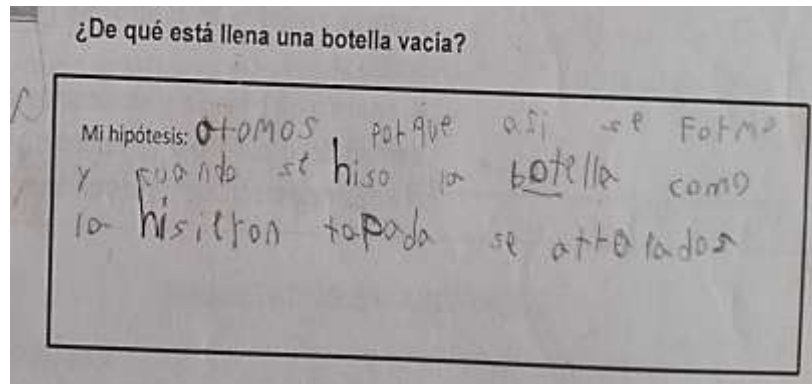 ¿De qué está llena una botella vacía?
Mi hipótesis: atomos porque asi se Forma
y cuando se hiso la botella como
la hisieron tapada se